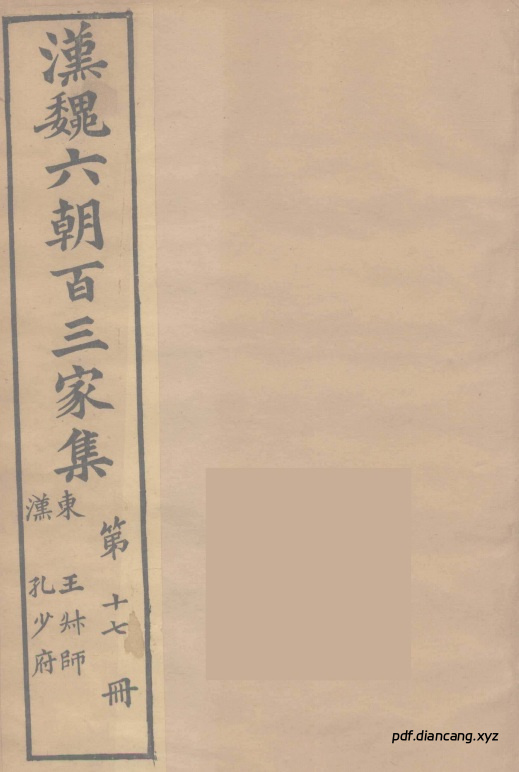 漢魏六朝百三家集
第十七冊
東漢
王叔師
孔少府
pdf.diancang.xyz